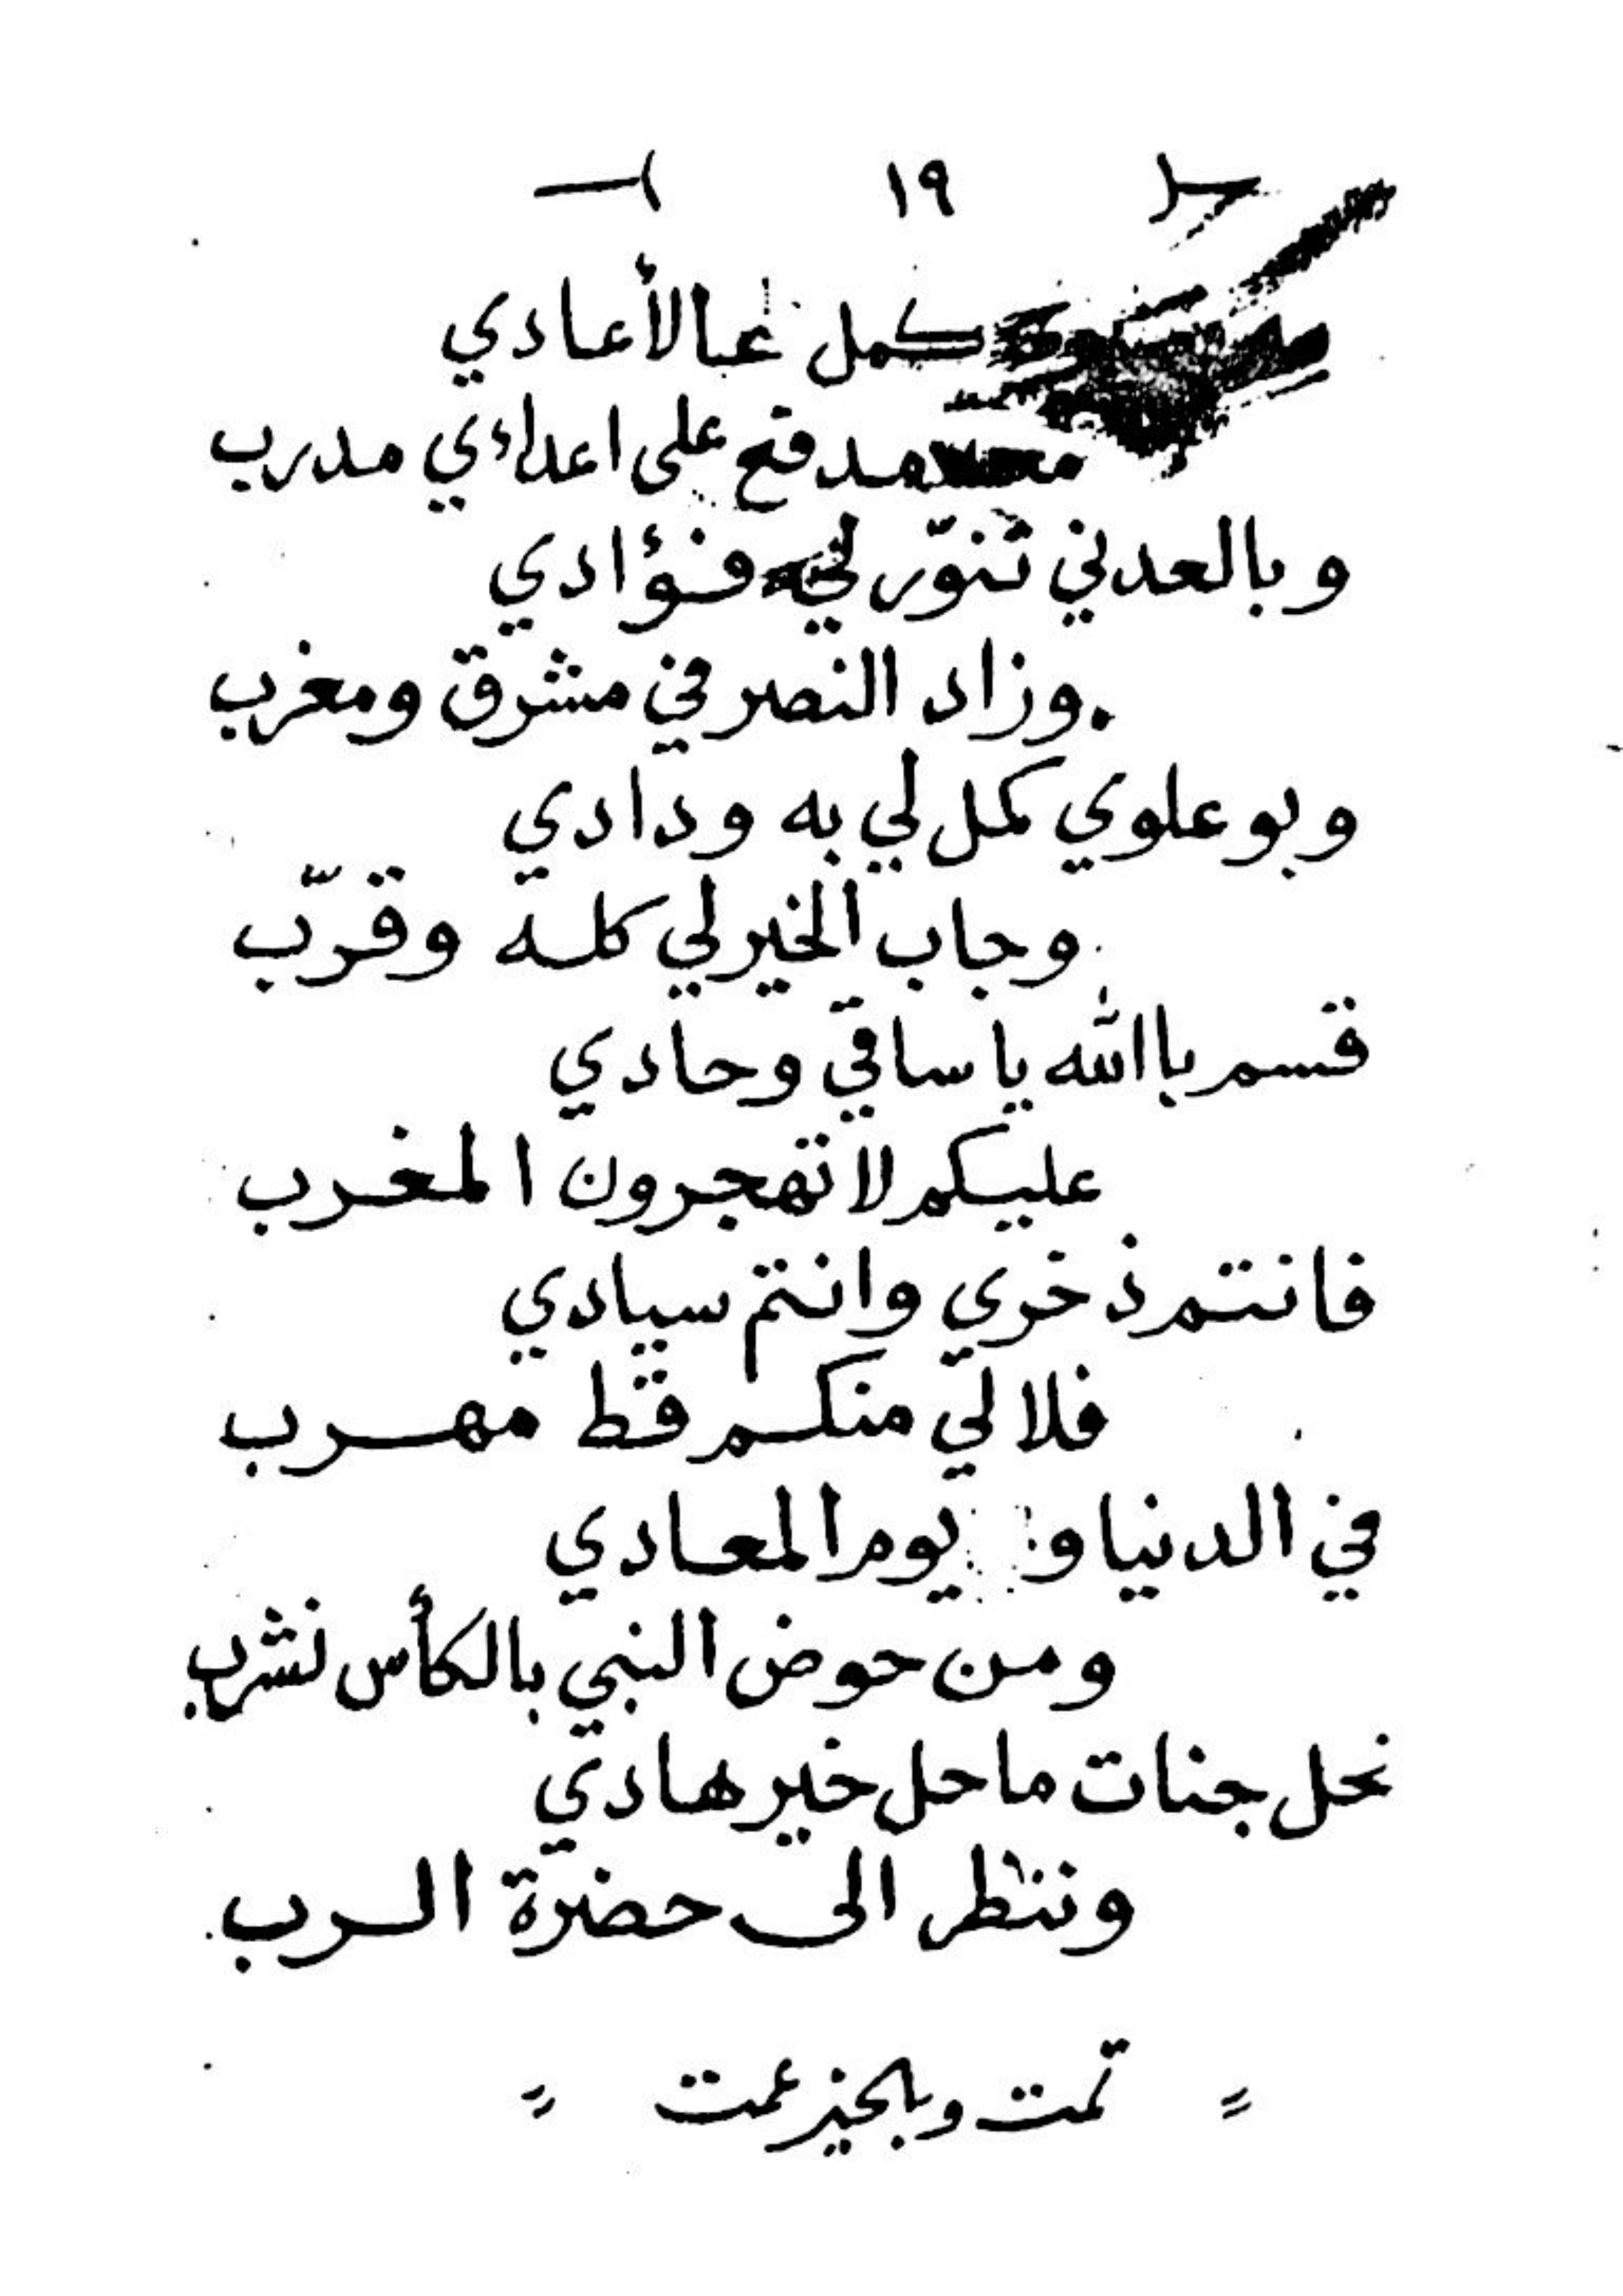 ١٩
كمل عبا الأعادي
مدفع على اعداءي مدرب
وبالعدني تنوّر لي فؤادي
وزاد النصر في مشرق ومغرب
وبو علوي كمل لي به ودادي
وجاب الخير لي كله وقرّب
قسم باالله يا ساقي وحادي
عليكم لا تهجرون المغرب
فانتم ذخري وانتم سيادي
فلا لي منكم قط مهرب
في الدنيا و يوم المعادي
ومن حوض النبي بالكأس نشرب
نحل جنات ما حل خير هادي
وننظر الى حضرة الرب
تمت وبلخير عمت